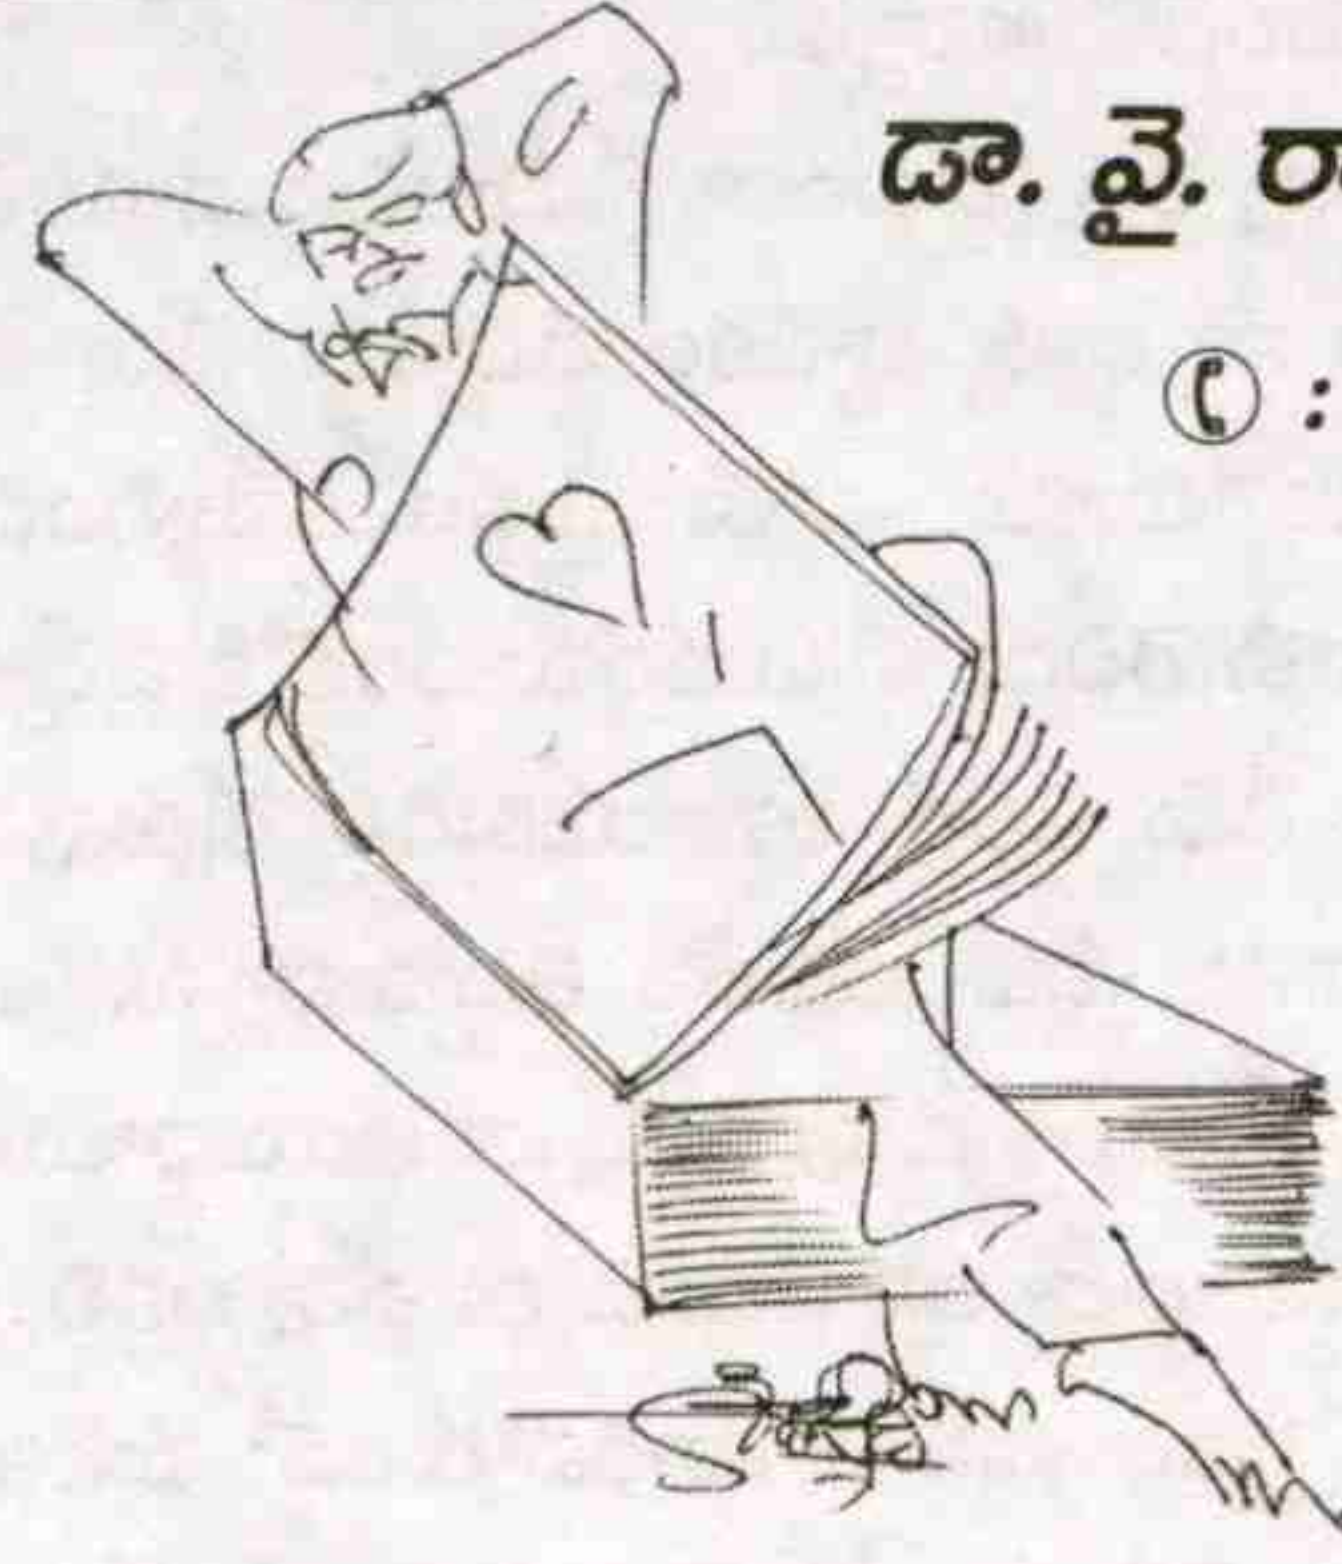 డా. వై. రా
: